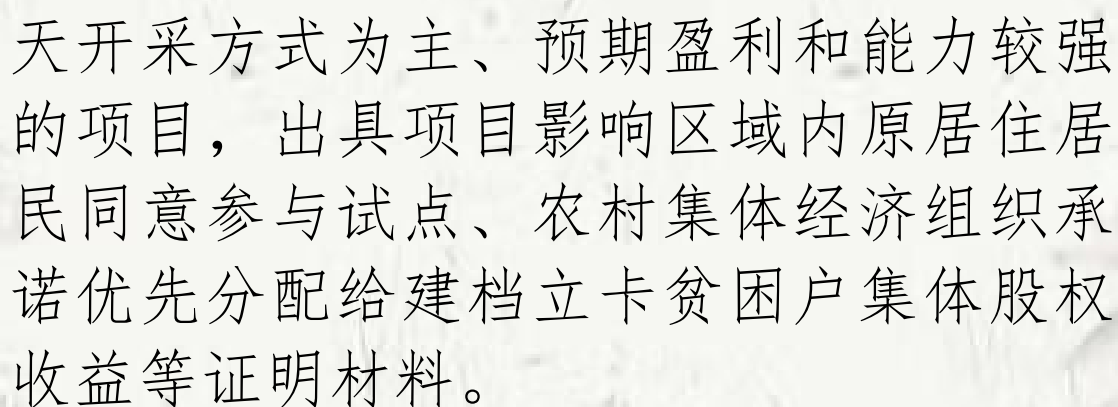 天开采方式为主、预期盈利和能力较强
的项目，出具项目影响区域内原居住居
民同意参与试点、农村集体经济组织承
诺优先分配给建档立卡贫困户集体股权
收益等证明材料。